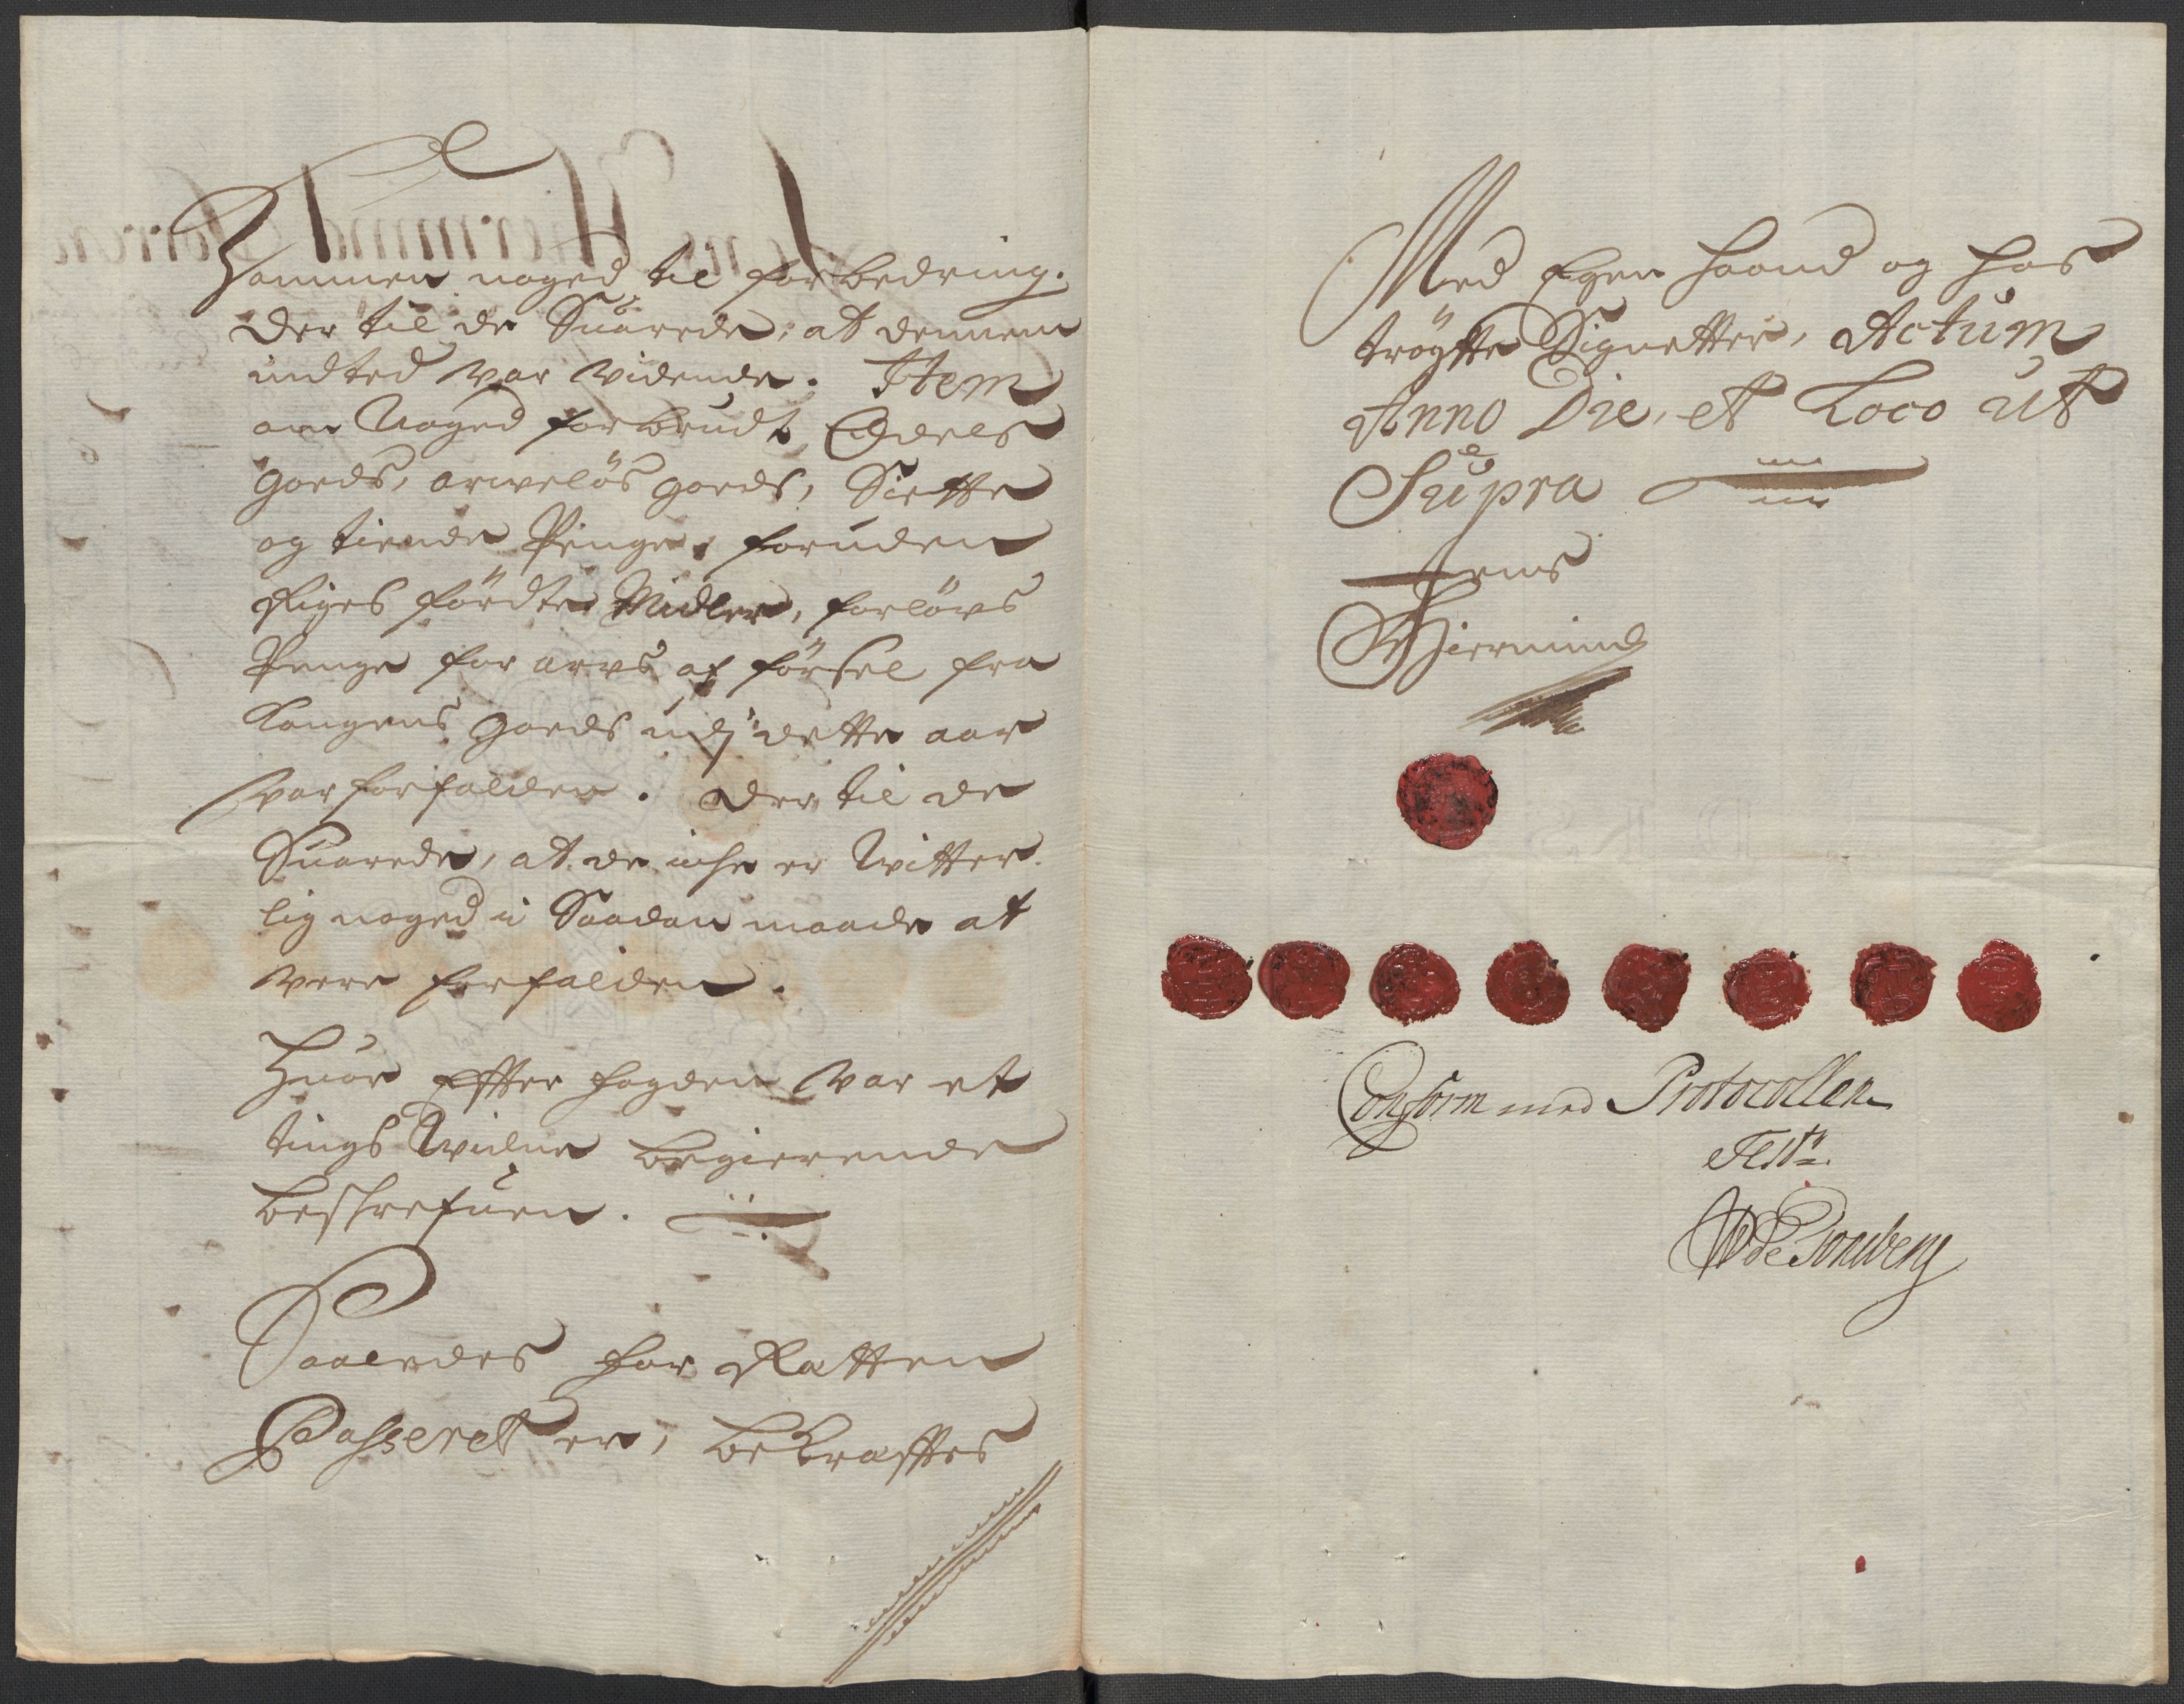 Kommen noged til forbedring.
der til de Suarede, at dennem
indted var vidende. Item
om Noged forbrudt Odels
goeds, arveløs goeds, Siette
og tiende Penge, foruden
Riges førdte Midler, forløvs
Penge for arvs af førsel fra
Kongens goeds udj dette aar
var forfalden. der til de
Suarede, at de iche er Witter-
lig noged i Saadan maade at
vere forfalden.
Huor Effter fogden var et
tings Widne begierende
beskrefuen.
Saaledes for Retten
Passeret er, bekræfftes
Med Egen haand og hos
trøgte Signetter, Actum
Anno Die, et Loco ut
Supra
Jens
Hiermind
Conform med Protocollen
Test: